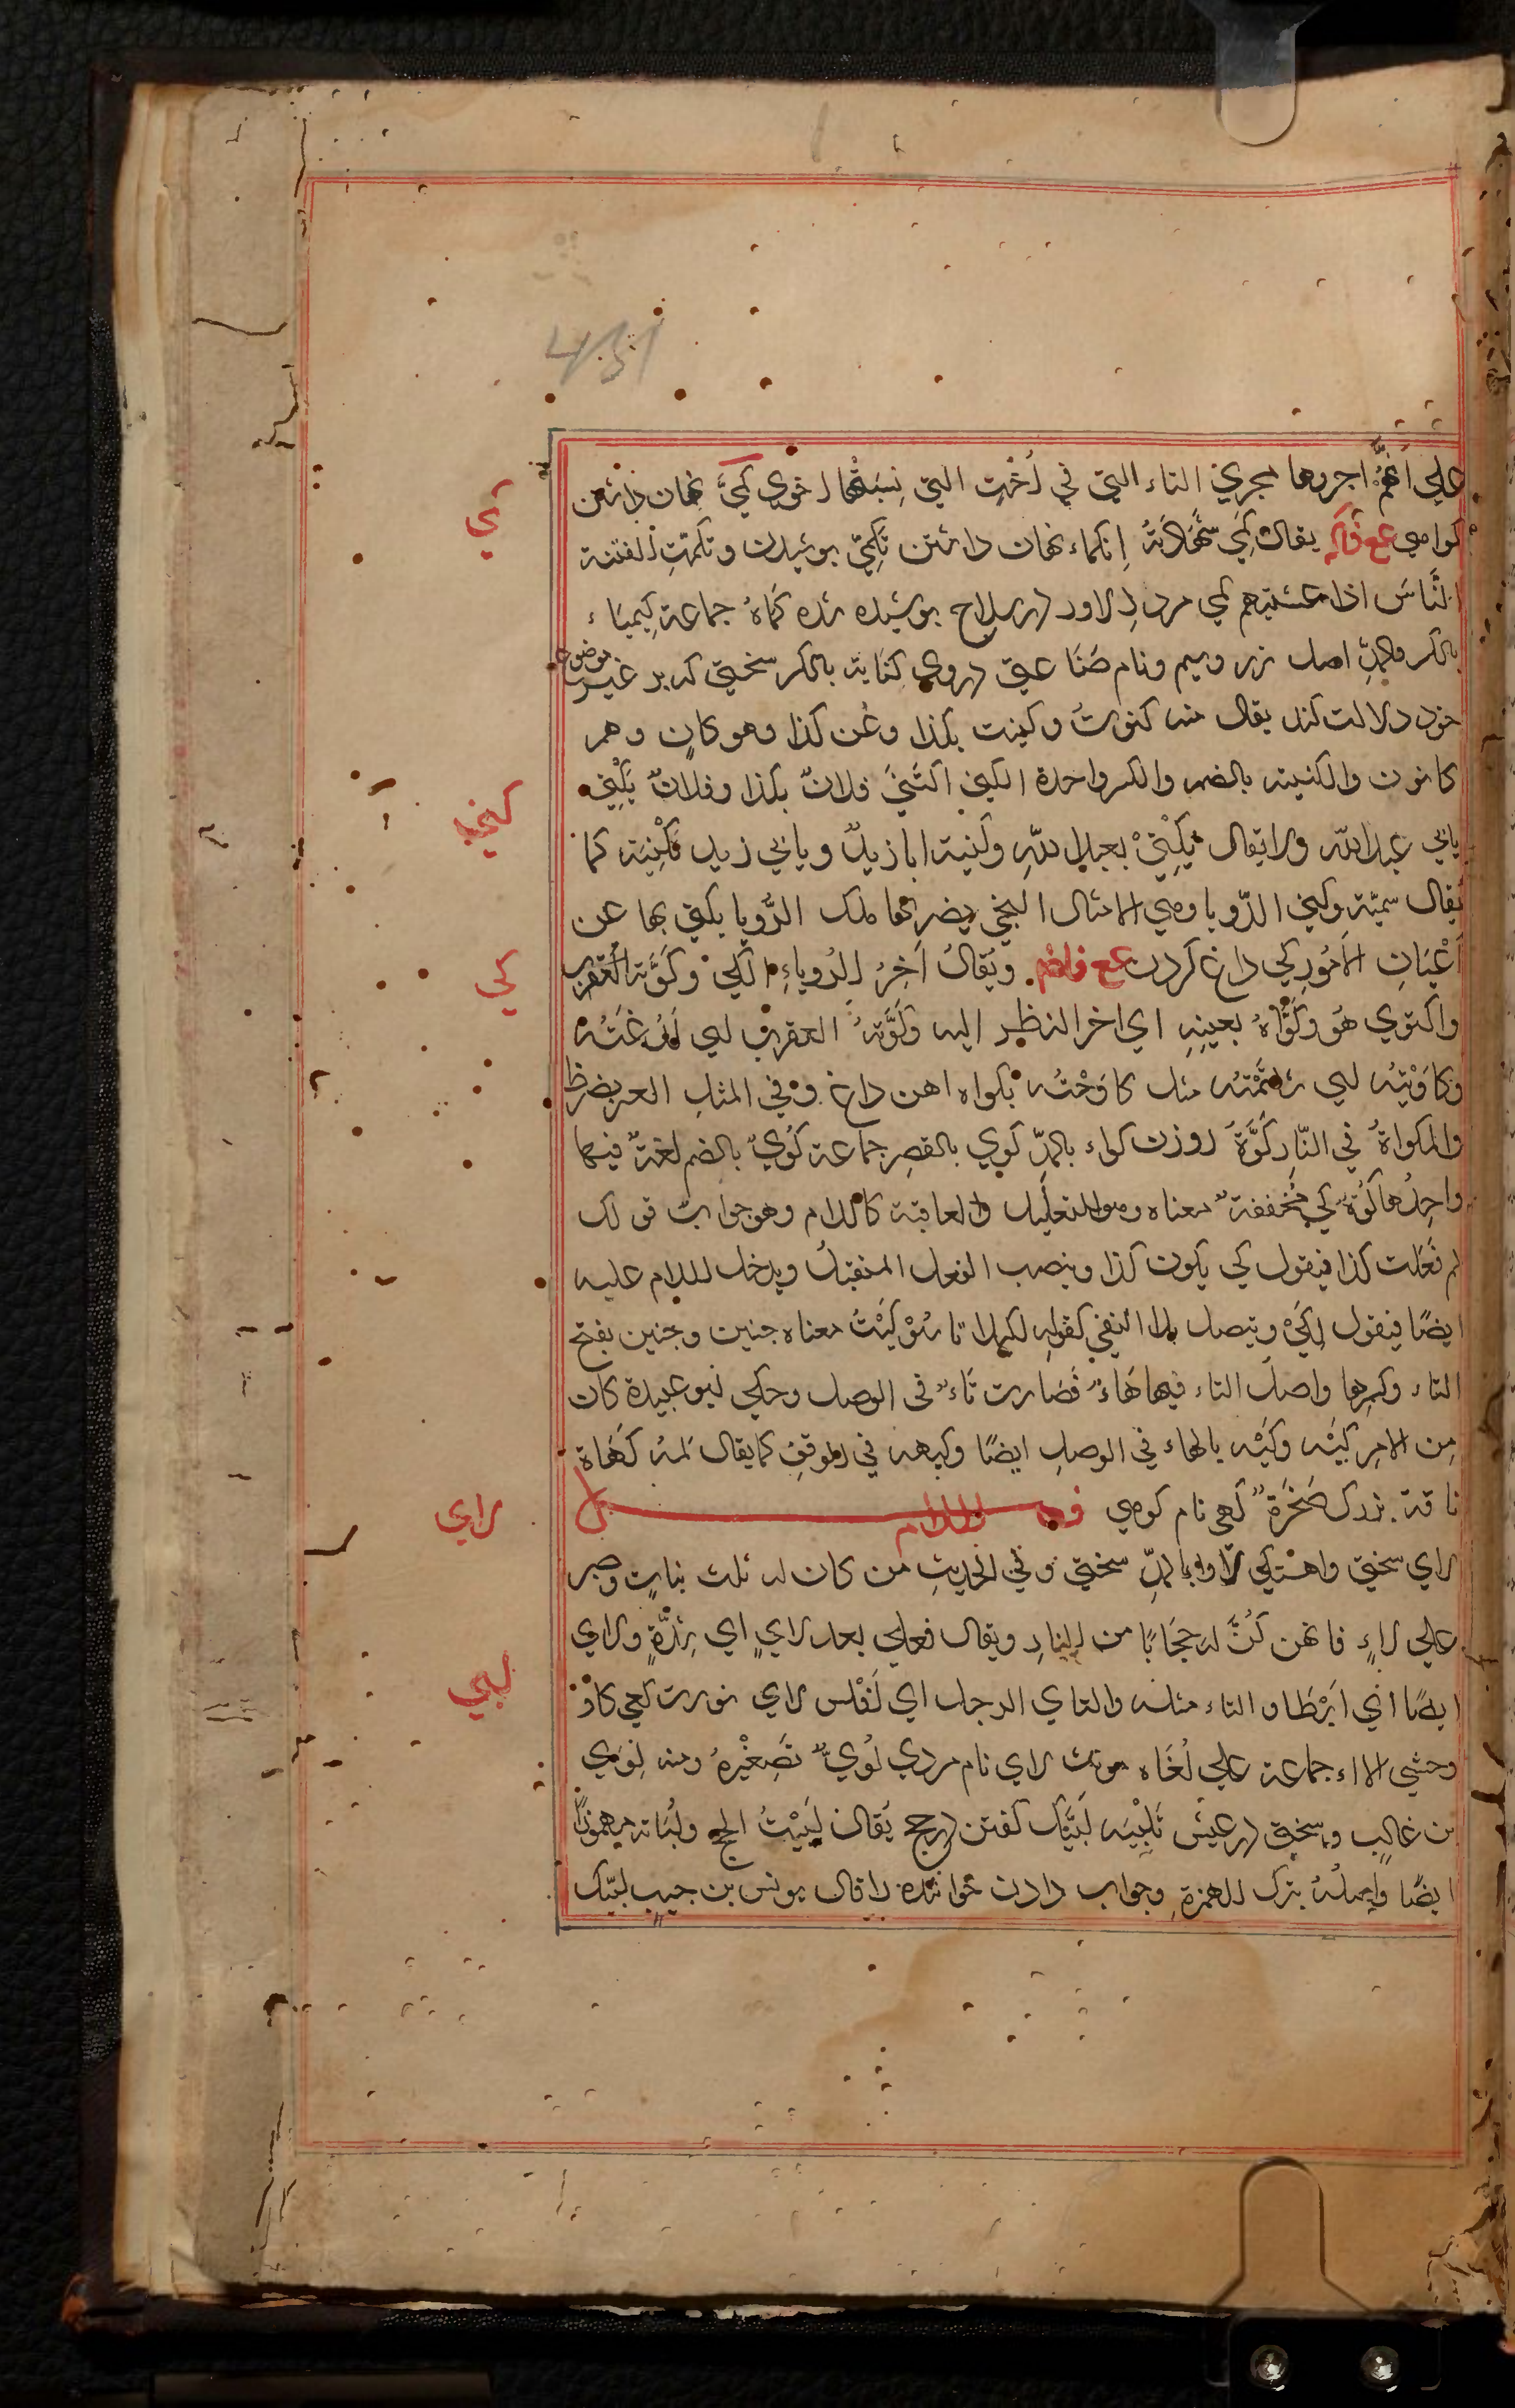 451
علي انهم اجروها مجري التاء التي في اُخْتِ التي نِسبَتُها اخوي كَمي نهان داشتن
كواهي ع ف ك يقال كَمي شَهَادَتَهُ اِنكماء نهان داشتن تَكَمّي پوشيدن وتكمّتِ الفتنة
النَّاسَ اذا غشيتهم كمي مرد دِلاور در سلاح پوشيده شده كُمَاةُ جماعة كِيمِيَاء
بالكسر والمدِّ اصل زر وسيم ونام صَنَاعتي در وي كنَايَة بالكسر سخني كه بر غير موضوع
خود دلالت كند يقال منه كنوتُ وكنيت بكذا وعَن كذا وهو كانٍ وهم
كانون والكنية بالضم والكسر واحدة الكني اكتَنَي فلانٌ بكذا وفلانٌ يُكْنَي
بابي عبدالله ولا يقال يُكْنَيْ بعبد اللهِ وكنية ابا زيدٍ وبابي زيد تَكْنِيَة كما
يُقال سميّة وكني الرّويا وهي الامثال التي يضربها ملك الرُّويا يكني بها عن
اَعْيَانِ الاُمُورِ كي داغ كردن ع ف ويُقالُ اَخِرُ الدواءِ الكي وكَوَّته العقرب
واكتوي هُوَ وكَوَّاهُ بعينِهِ اي اخر النظر اليه وكَوَتهُ العقرب اي لَدغَتْه
وكاوَيْتُه اي شاتَمْتُه مثل كاوَحْتُه مِكواه اهن داغ وفي المثل العير يضرط
والمكواةُ في النَّارِ كَوَّةٌ روزن كواء بالمدِّ كِوي بالقصر جماعة كُويٌ بالضم لغةٌ فيها
واحِدُها كُوّة كي مُخففةٌ معناه وهو التعليل والعاقبة كاللام وهو جوابُ قولك
لِم فَعَلتَ كذا فيقول كي يكون كذا وينصب الفعل المستقبلُ ويدخل اللام عليه
ايضًا فيقول لِكَيْ ويتصل بلا النفي كقوله لكيلا تاسَوْ كَيْتُ معناه چنين وچنين بفتح
التاء وكسرها واصلُ التاء فيها هَاءٌ فَصَارت تَاءً في الوصل وحكي ابو عبيدة كان
مِن الامرِ كَيْه وكَيْه بالهاء في الوصلِ ايضًا وكيهه في الموقفِ كما يقال ثمه كَهَاة
ناقة بزرك ضَخرَة كهي نام كوهي فصل اللام
لاي سختي واهستكي لاواء بالمدِّ سختي وفي الحديثِ من كان له ثلث بناتٍ وصبر
علي لاءٍ فانهن كُنَّ له حِجَابًا من النارِ ويقال فعلي بعد لايٍ اي شِدَّةٍ ولاي
ايضًا اي اَبْطَا والتاء مثله والتاي الرجل اي اَفْلس لاي نورت لعي كاو
وحشي الااء جماعة علي لُغَاه مونث لاي نام مردي لُويٌّ تَصِغْيرهُ ومنه لِوَيْ
بن غالب وسختي در عيش تَلبِيَه لَبَّيْك كفتن در حج يُقال لَبّيْتُ الحج ولُبَاته مهموزًا
ايضًا واصلُه بترك الهمزةِ وجواب دادن خوانده را قال يونس بن حبيب لبّيك
كمي
كني
كي
لاي
لبي